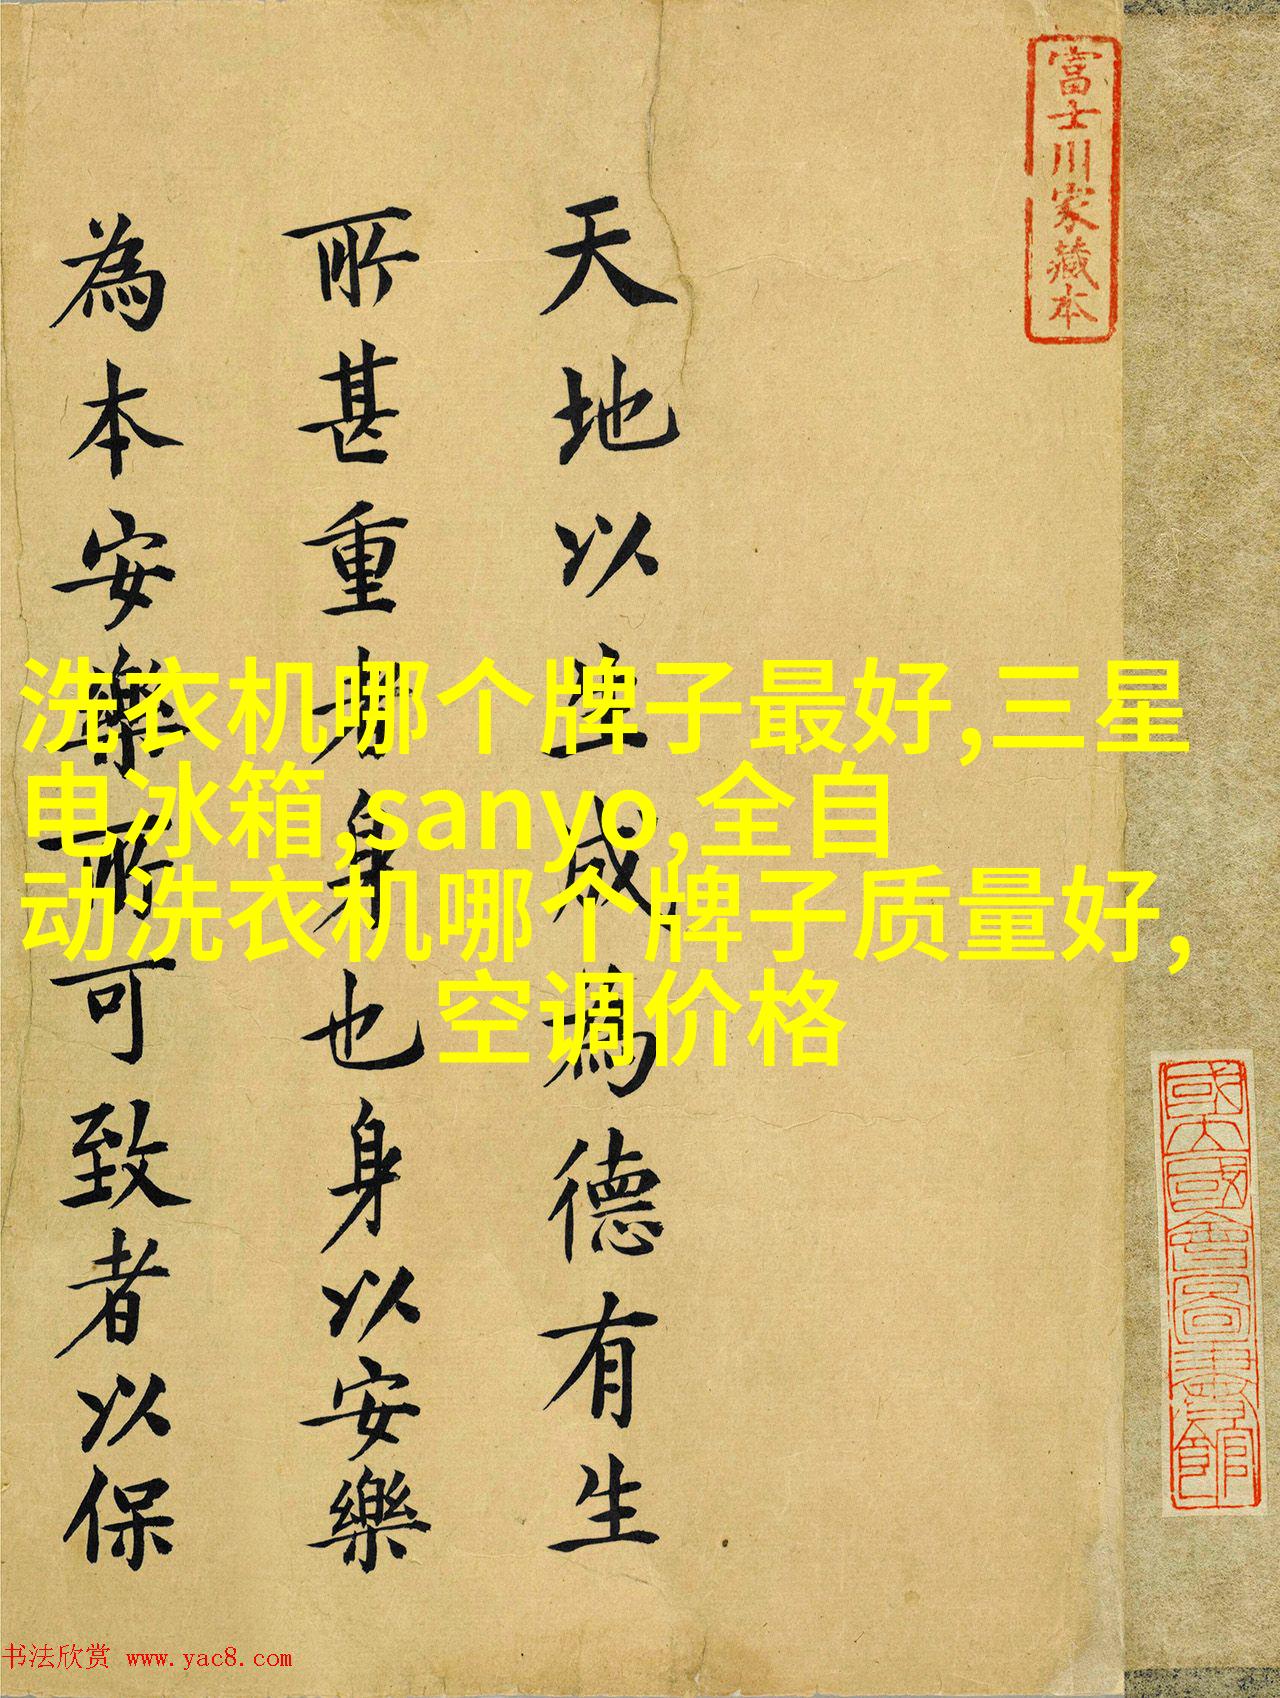 富士川家藏本
天地以生成為德有生
所甚重者身也身以安樂
為本安樂所可致者以保
洗衣机哪个牌子最好,三星
电冰箱,sanyo,全自
动洗衣机哪个牌子质量好,
空调价格
书法欣赏 www.yac8.com